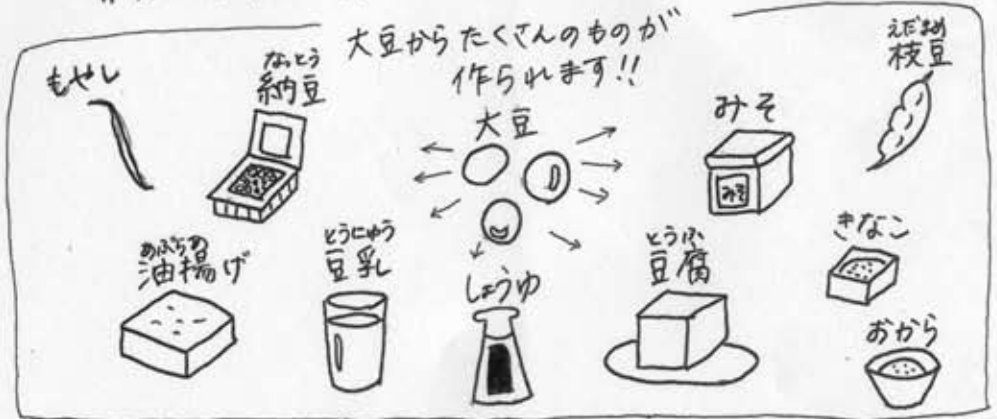 大豆からたくさんのものが
作られます!!
もやし
なっとう
納豆
大豆
みそ
みそ
えだまめ
枝豆
あぶらあ
油揚げ
とうにゅう
豆乳
しょうゆ
とうふ
豆腐
きなこ
おから